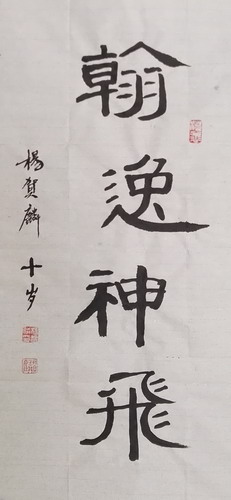 翰逸神飛
楊賀麟 十岁